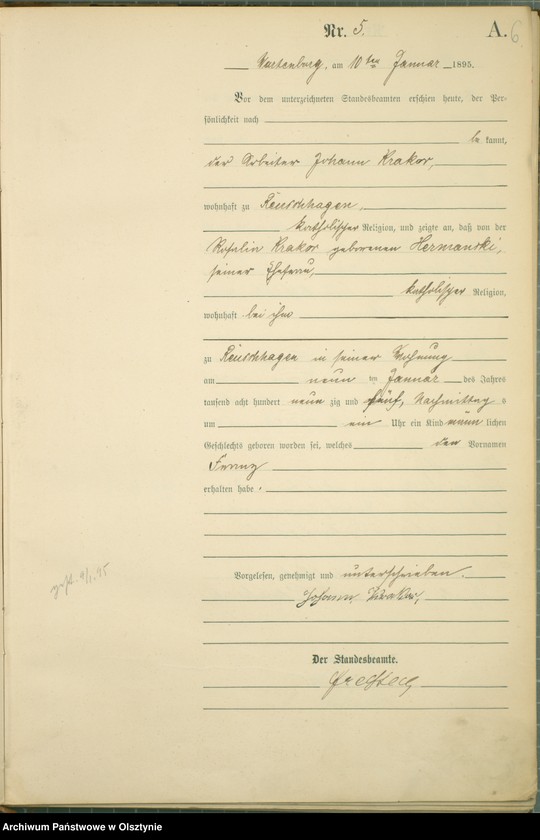 Nr. 5. A. 6
Wartenburg, am 10ten Januar 1895.
Vor dem unterzeichneten Standesbeamten erschien heute, der Per-
sönlichkeit nach
be kannt,
der Arbeiter Johann Krakor,
wohnhaft zu Reuschhagen,
katholischer Religion, und zeigte an, daß von der
Rosalia Krakor geborenen Hermanski,
seiner Ehefrau,
katholischer Religion,
wohnhaft bei ihm
zu Reuschhagen in seiner Wohnung
am neun ten Januar des Jahres
tausend acht hundert neun zig und fünf, Nachmittags
um ein Uhr ein Kind männ lichen
Geschlechts geboren worden sei, welches den Vornamen
Franz
erhalten habe.
gest. 9/1. 95
Vorgelesen, genehmigt und unterschrieben.
Johann Krakor
Der Standesbeamte.
Archiwum Państwowe w Olsztynie